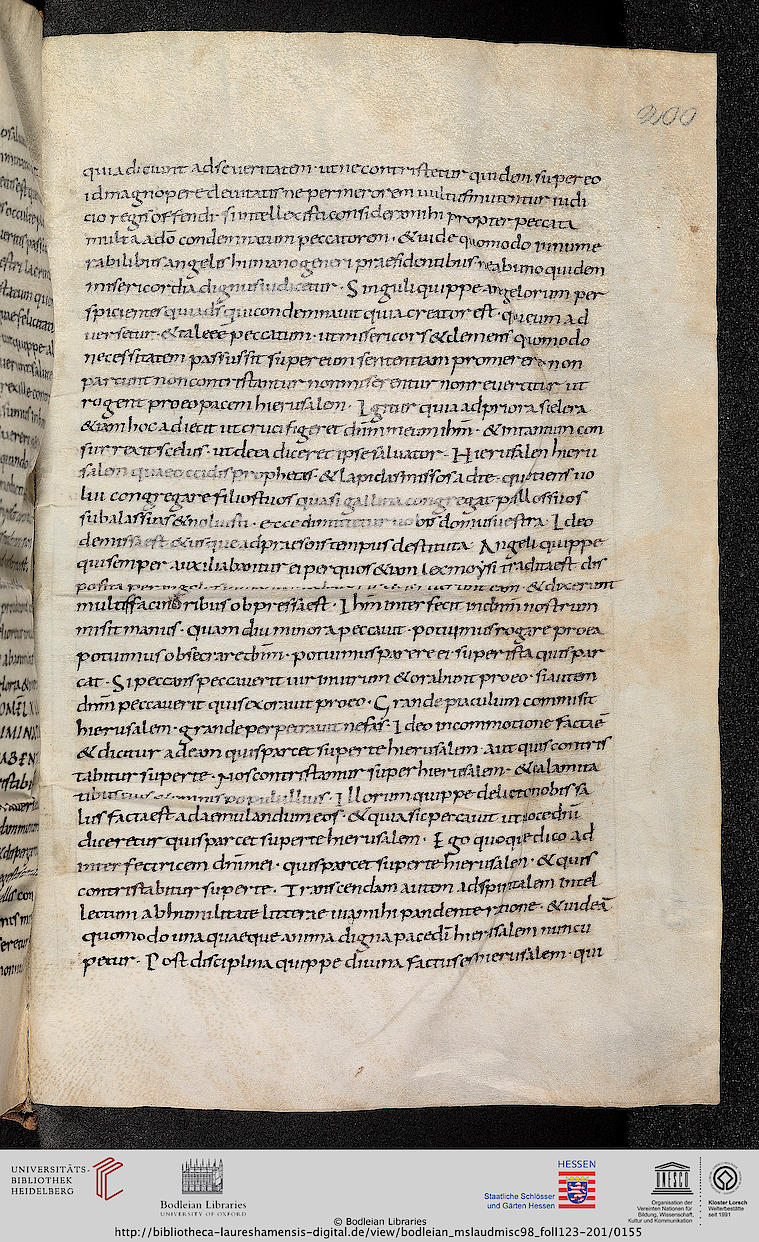 200
quia dicunt adseveritatem · utnecontristetur quidem super eo
idmagnopere devitatis ne permerorem vultus mutentur iudi
cio regis offendi · si intellexisti considera mihi propter peccata
multa adō condemnatum peccatorem · & vide quomodo innume
rabilibus angelis humano generi praesidentibus neabuno quidem
misericordia dignus iudicetur · Singuli quippe angelorum per
spicientes quia dš qui condemnavit quia creator est · qui eum ad
versetur · & tale eē peccatum · ut misericors & clemens quomodo
necessitatem passus sit super eum sententiam promerere · non
parcunt non contristantur non miserentur non revertitur ut
rogent pro eo pacem hierusalem · Igitur quia ad priora scelera
& iam hoc adiecit ut crucifigeret dnm meum ihm · & intantum con
surrexit scelus · ut de ea diceret ipse salvator · Hierusalem hieru
salem quae occidis prophetas & lapidas missos ad te · quotiens vo
lui congregare filios tuos quasi gallina congregat pullos suos
sub alas suas & noluisti · ecce dimittetur vobis domus vestra · Ideo
demissa est & usque ad praesens tempus destituta · Angeli quippe
qui semper auxiliabantur ei per quos & iam lex moysi tradita est dis
posita per
multis facinoribus obpressa est · Ihm interfecit in dnm nostrum
misit manus · quam diu minora peccavit · potuimus rogare pro ea
potuimus obsecrare dnm · potuimus parcere ei · super ista quis par
cat · Si peccans peccaverit vir in virum & orabunt pro eo · si autem
dnm peccaverit quis exoravit pro eo · Grande piaculum commisit
hierusalem · grande perpetravit nefas · Ideo in commotione facta ē
& dicitur ad eam quis parcet super te hierusalem · aut quis contris
tabitur super te · Nos contristamur super hierusalem · & calamita
tibus eius & omnis populi illius · Illorum quippe delicto nobis sa
lus facta est ad aemulandum eos · & quia sic peccavit ut
diceretur quis parcet super te hierusalem · Ego quoque dico ad
interfectricem dnī mei · quis parcet super te hierusalem · & quis
contristabitur super te · Transcendam autem ad spiritalem intel
lectum ab humilitate litterae viam mihi pandente ratione · & videā
quomodo una quaeque anima digna pace dī hierusalem nuncu
petur · Post disciplina quippe divina factus es hierusalem · qui
UNIVERSITÄTS-
BIBLIOTHEK
HEIDELBERG
Bodleian Libraries
UNIVERSITY OF OXFORD
© Bodleian Libraries
HESSEN
Staatliche Schlösser
und Gärten Hessen
UNESCO
Organisation der
Vereinten Nationen für
Bildung, Wissenschaft,
Kultur und Kommunikation
Kloster Lorsch
Welterbestätte
seit 1991
http://bibliotheca-laureshamensis-digital.de/view/bodleian_mslaudmisc98_foll123-201/0155